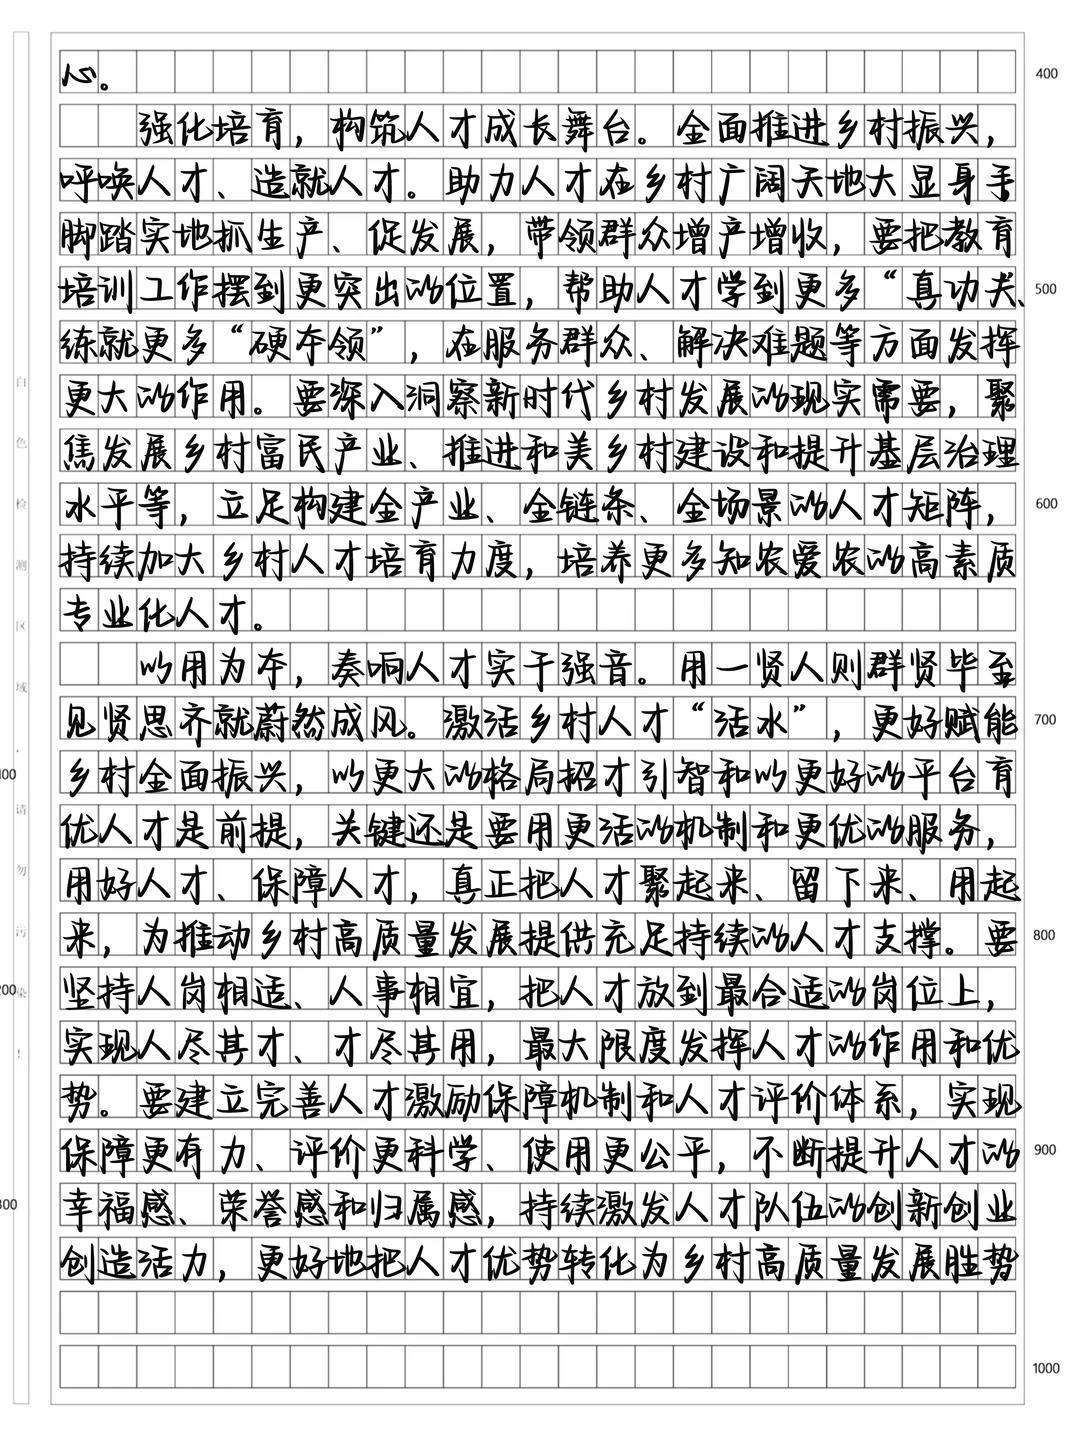 心。
400
强化培育，构筑人才成长舞台。全面推进乡村振兴，
呼唤人才、造就人才。助力人才在乡村广阔天地大显身手
脚踏实地抓生产、促发展，带领群众增产增收，要把教育
培训工作摆到更突出的位置，帮助人才学到更多“真功夫、
500
练就更多“硬本领”，在服务群众、解决难题等方面发挥
更大的作用。要深入洞察新时代乡村发展的现实需要，聚
焦发展乡村富民产业、推进和美乡村建设和提升基层治理
水平等，立足构建全产业、全链条、全场景的人才矩阵，
600
持续加大乡村人才培育力度，培养更多知农爱农的高素质
专业化人才。
以用为本，奏响人才实干强音。用一贤人则群贤毕至
见贤思齐就蔚然成风。激活乡村人才“活水”，更好赋能
700
乡村全面振兴，以更大的格局招才引智和以更好的平台育
优人才是前提，关键还是要用更活的机制和更优的服务，
用好人才、保障人才，真正把人才聚起来、留下来、用起
来，为推动乡村高质量发展提供充足持续的人才支撑。要
800
坚持人岗相适、人事相宜，把人才放到最合适的岗位上，
实现人尽其才、才尽其用，最大限度发挥人才的作用和优
势。要建立完善人才激励保障机制和人才评价体系，实现
保障更有力、评价更科学、使用更公平，不断提升人才的
900
幸福感、荣誉感和归属感，持续激发人才队伍的创新创业
创造活力，更好地把人才优势转化为乡村高质量发展胜势
1000
白色检测区域，请勿污染！
100
200
300